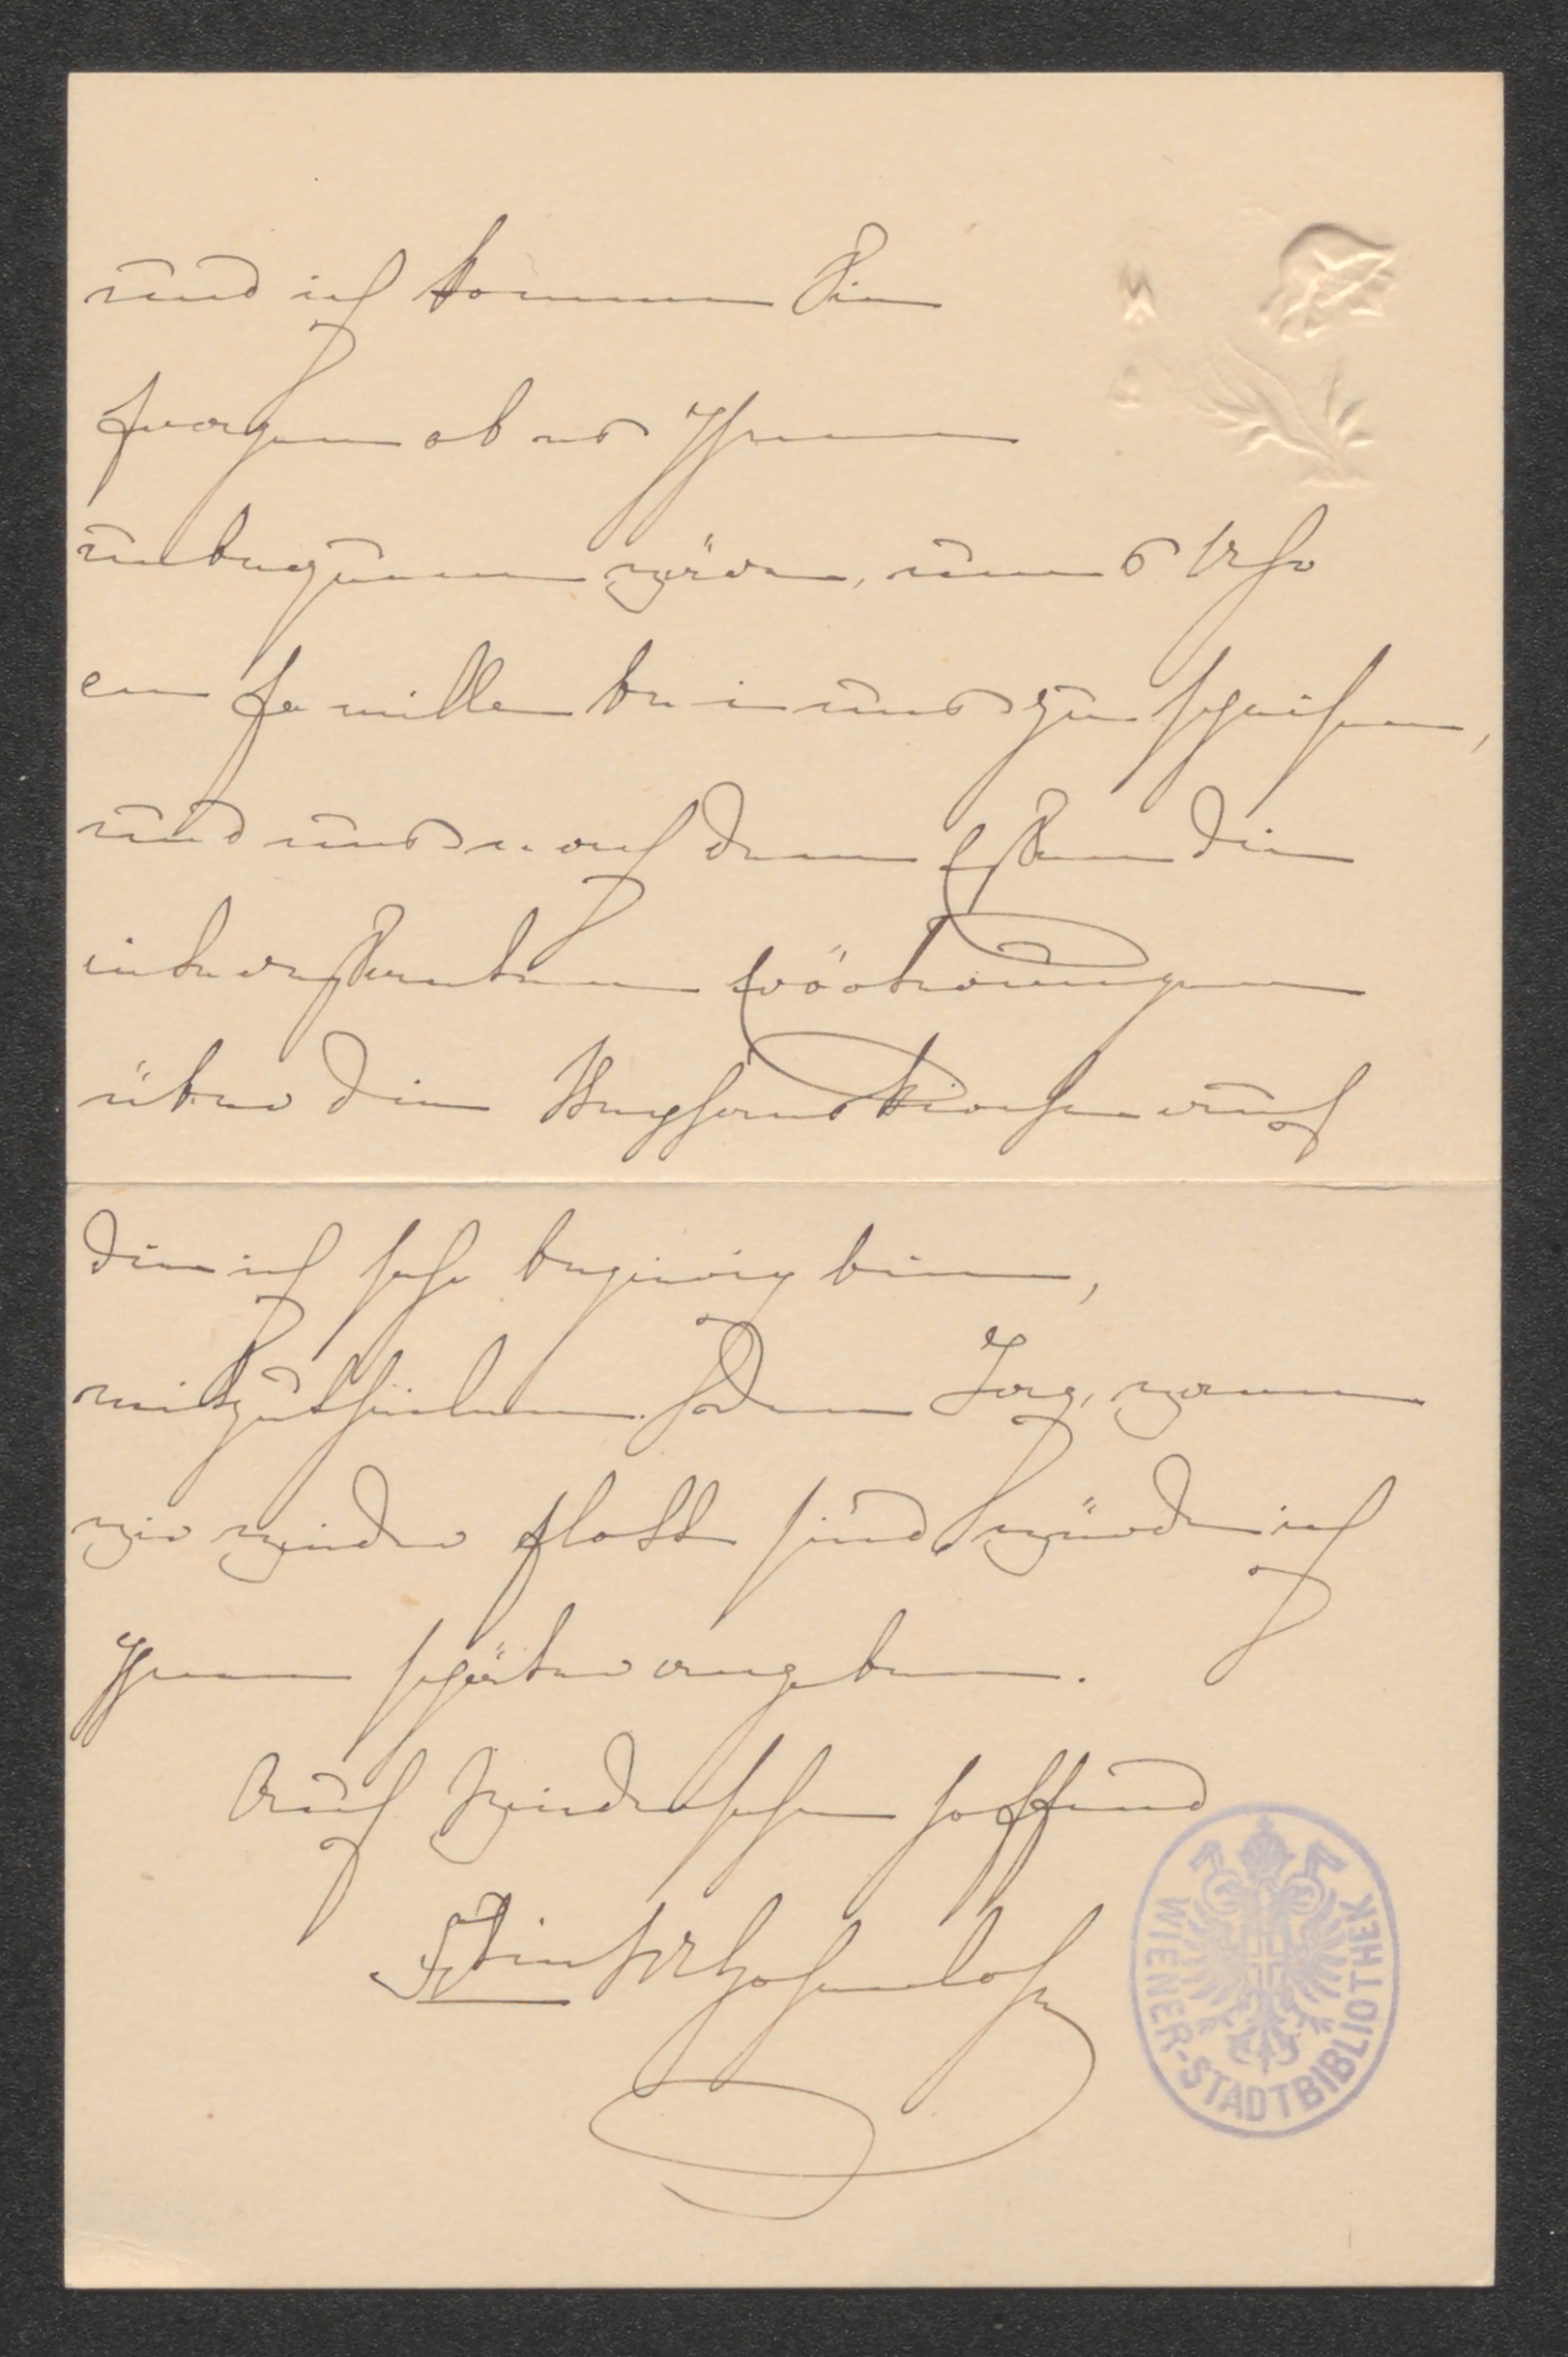 und ich komme Sie
fragen ob es Ihnen
unbequem wäre, um 6 Uhr
en famille bei uns zu speisen,
und uns nach dem Essen die
interessanten Erörterungen
über die Stephanskirche auf
die ich sehr begierig bin,
mitzutheilen. Den Tag, wann
wir wieder flott sind, würde ich
Ihnen später angeben.
Auf Wiedersehen hoffend
Hohenlohe
WIENER-STADTBIBLIOTHEK